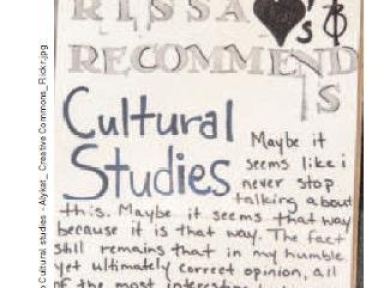 RISSA ♥'s
RECOMMENDS
Cultural
Studies
Maybe it
seems like i
never stop
talking about
this. Maybe it seems that way
because it is that way. The fact
still remains that in my humble
yet ultimately correct opinion, all
of the most interesting
Cultural studies - Alykat_ Creative Commons_ Flickr.jpg